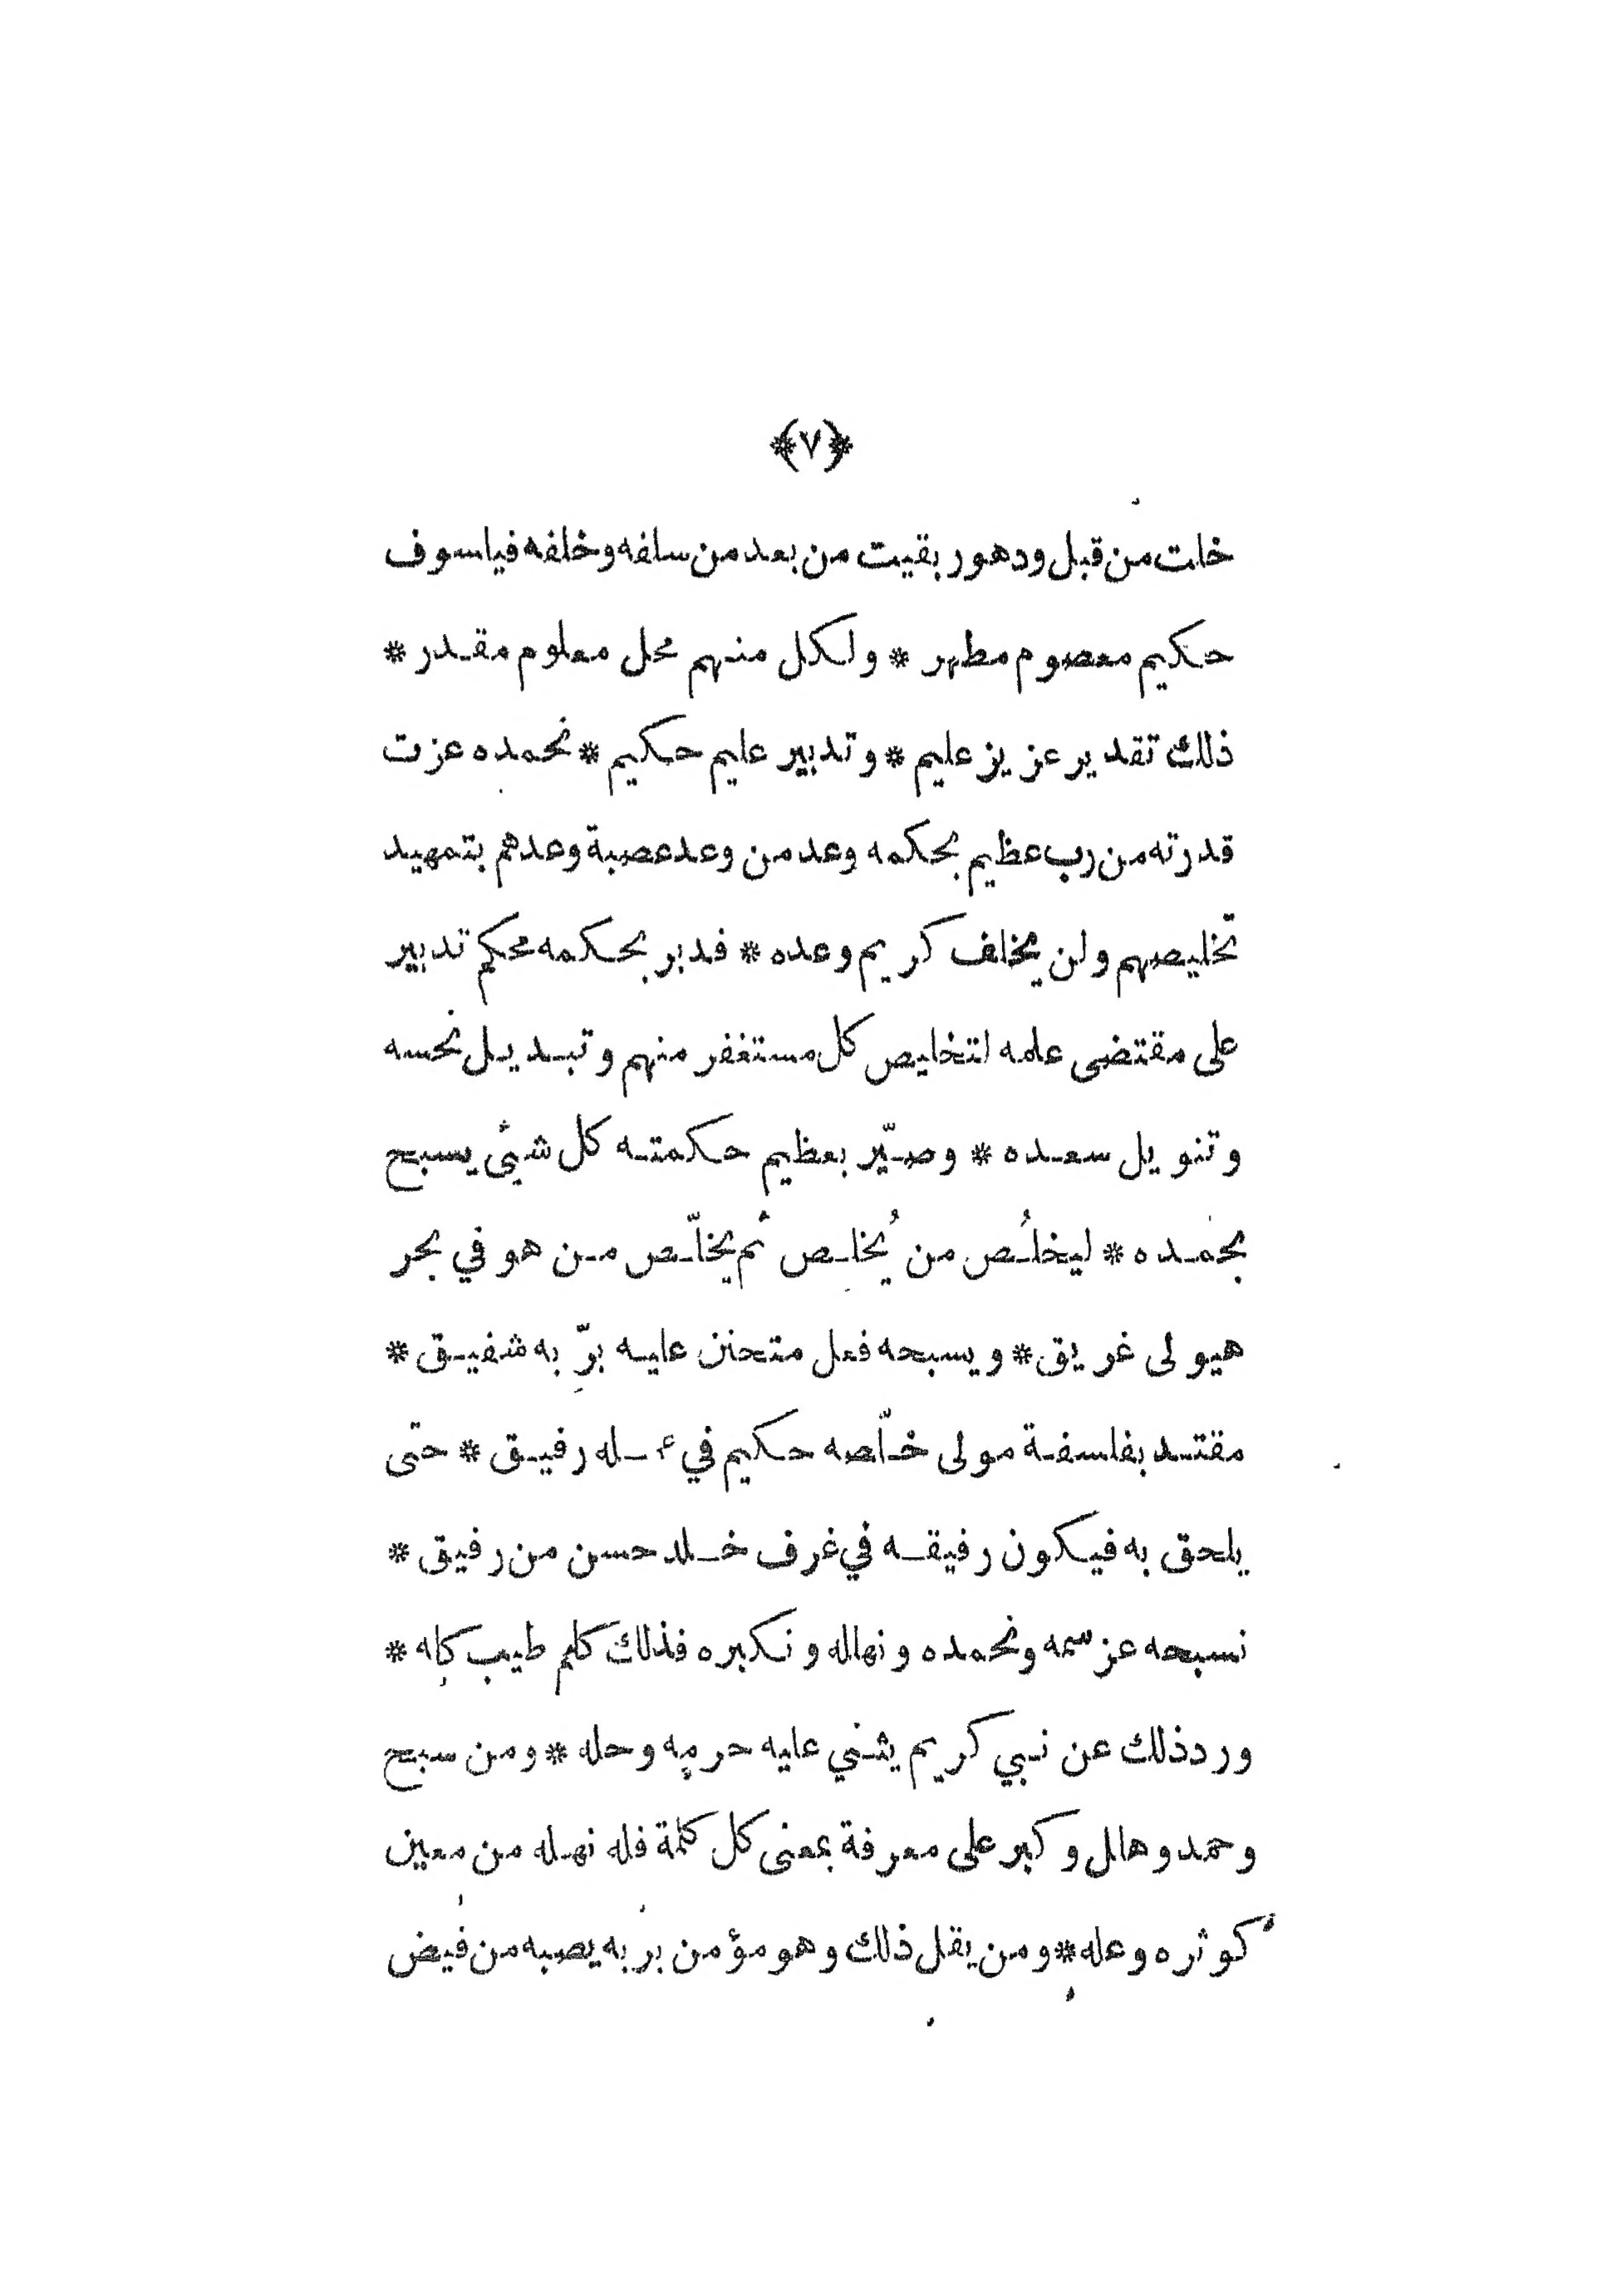 ﴿٧﴾
خلت من قبل ودهور بقيت من بعد من سلفه وخلفه فيلسوف
حكيم معصوم مطهر * ولكل منهم محل معلوم مقدر *
ذلك تقدير عزيز عليم * وتدبير عليم حكيم * نحمده عزت
قدرته من رب عظيم بحكمه وعد من وعد عصبة وعدهم بتمهيد
تخليصهم ولن يخلف كريم وعده * فدبر بحكمه محكم تدبير
على مقتضى علمه لتخليص كل مستغفر منهم وتبديل نحسه
وتنويل سعده * وصيّر بعظيم حكمته كل شئ يسبح
بحمده * ليخلُص من يُخلص ثم يخلّص من هو في بحر
هيولى غريق * ويسبحه فعل متحنن عليه برّ به شفيق *
مقتد بفلسفة مولى خلّصه حكيم في رفيق * حتى
يلحق به فيكون رفيقه في غرف خلد حسن من رفيق *
نسبحه عز سمه ونحمده ونهلله ونكبره فذلك كلم طيب كله *
ورد ذلك عن نبي كريم يثني عليه حرمه وحله * ومن سبح
وحمد وهلل وكبر على معرفة بمعنى كل كلمة فله نهله من معين
كوثره وعله * ومن يقل ذلك وهو مؤمن بربه يصبه من فيض